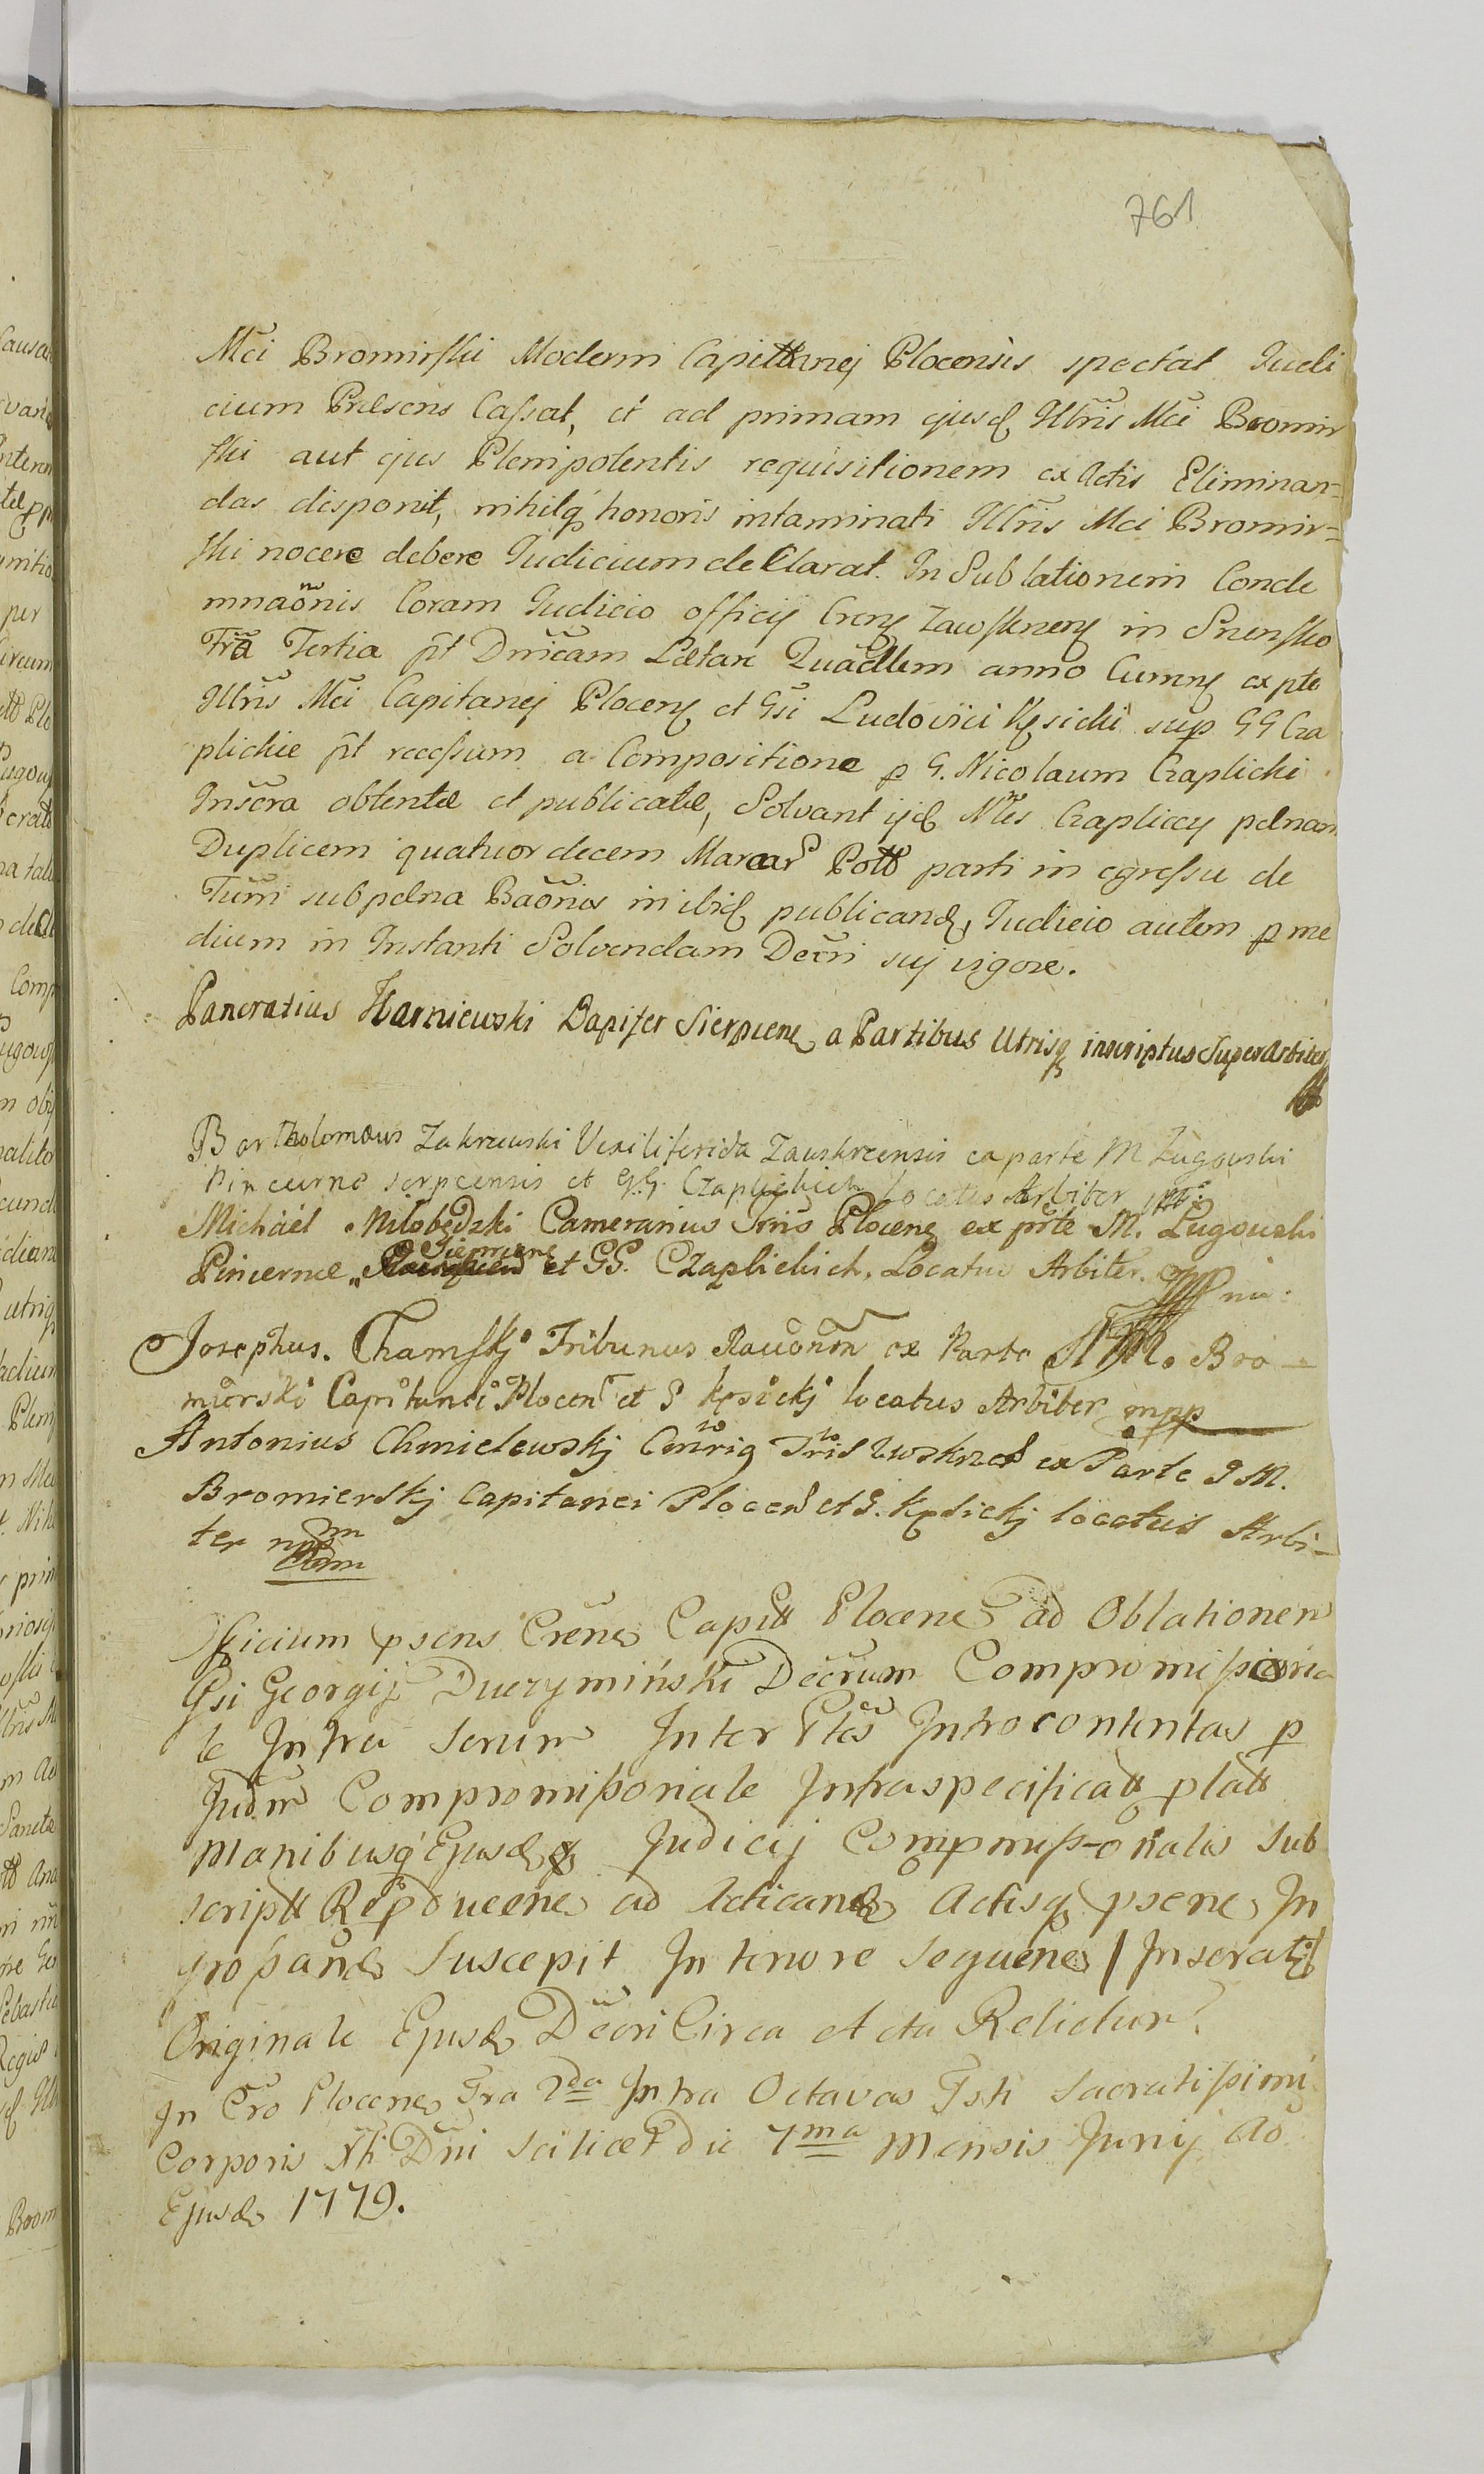 761
Mci Bromirski Moderni Capittanej Plocensis spectat Judi
cium Præsens Cassat, et ad primam ejusd Illris Mci Bromir
ski aut ejus Plenipotentis requisitionem ex Actis Eliminan=
das disponit, nihilq honoris intaminati Illris Mci Bromir=
ski nocere debere Judicium deClarat. In Sublationem Conde
mnaõnis Coram Judicio officij Crens Zawskrens in
Fra Tertia pt Dnicam Lætare Quadlem anno Currens ex pte
Illris Mci Capitanej Plocens et Gsi Ludovici Kęsicki sup GG Cza
plickie pt recessum a Compositione p G. Nicolaum Czaplicki
Inscra obtentæ et publicatæ, Solvant ijd Nles Czapliccy pænam
Duplicem quatuordecem Marcar Poltt parti in egressu de
Turri sub pæna Baõnis in ibid publicand, Judicio autem p me
dium in Instanti Solvendam Decri suj vigore.
Pancratius Karniewski Dapifer Sierpcens a Partibus Utrisq inscriptus SuperArbiter
Bartholomæus Zakrzewski Vexilliferida Zawskrcensis ex parte M Ługowski
Pincernæ serpcensis et GG. Czaplickich locatus Arbiter mp.
Michaël Miłobędzki Camerarius Trris Plocens ex prte M. Ługowski
Pincernæ Sierpcens et GG. Czaplickich, Locatus Arbiter. mp.
Josephus. Chamskj Tribunus ex Parte M. Bro-
mierski Capitanei Plocens et G Kęsickj locatus Arbiter mpp
Antonius Chmielewskj Trris Zwskrzens ex Parte J M.
Bromierskj Capitanei Plocens et G. Kęsickj locatus Arbi-
ter mpp
Officium psens Crens Capitt Plocens ad Oblationem
Gsi Georgij Duczymiński Decrum Compromissoria
le Intra Scrum Inter Ptes Introcontentas p
Judm Compromissoriale Intraspecificatt platt
Manibusq Ejusd Judicij Compmissorialis Sub
scriptt Repducens ad Acticand Actisq psens In
grossand Suscepit In tenore Sequens / Inserat:/
Originale Ejusd Decri Circa Acta Relictur.
In Cro Plocens Fra 2da Intra Octavas Fsti Sacratissimi
Corporis Xti Dni Scilicet die 7ma Mensis Junij Ao
Ejusd 1779.